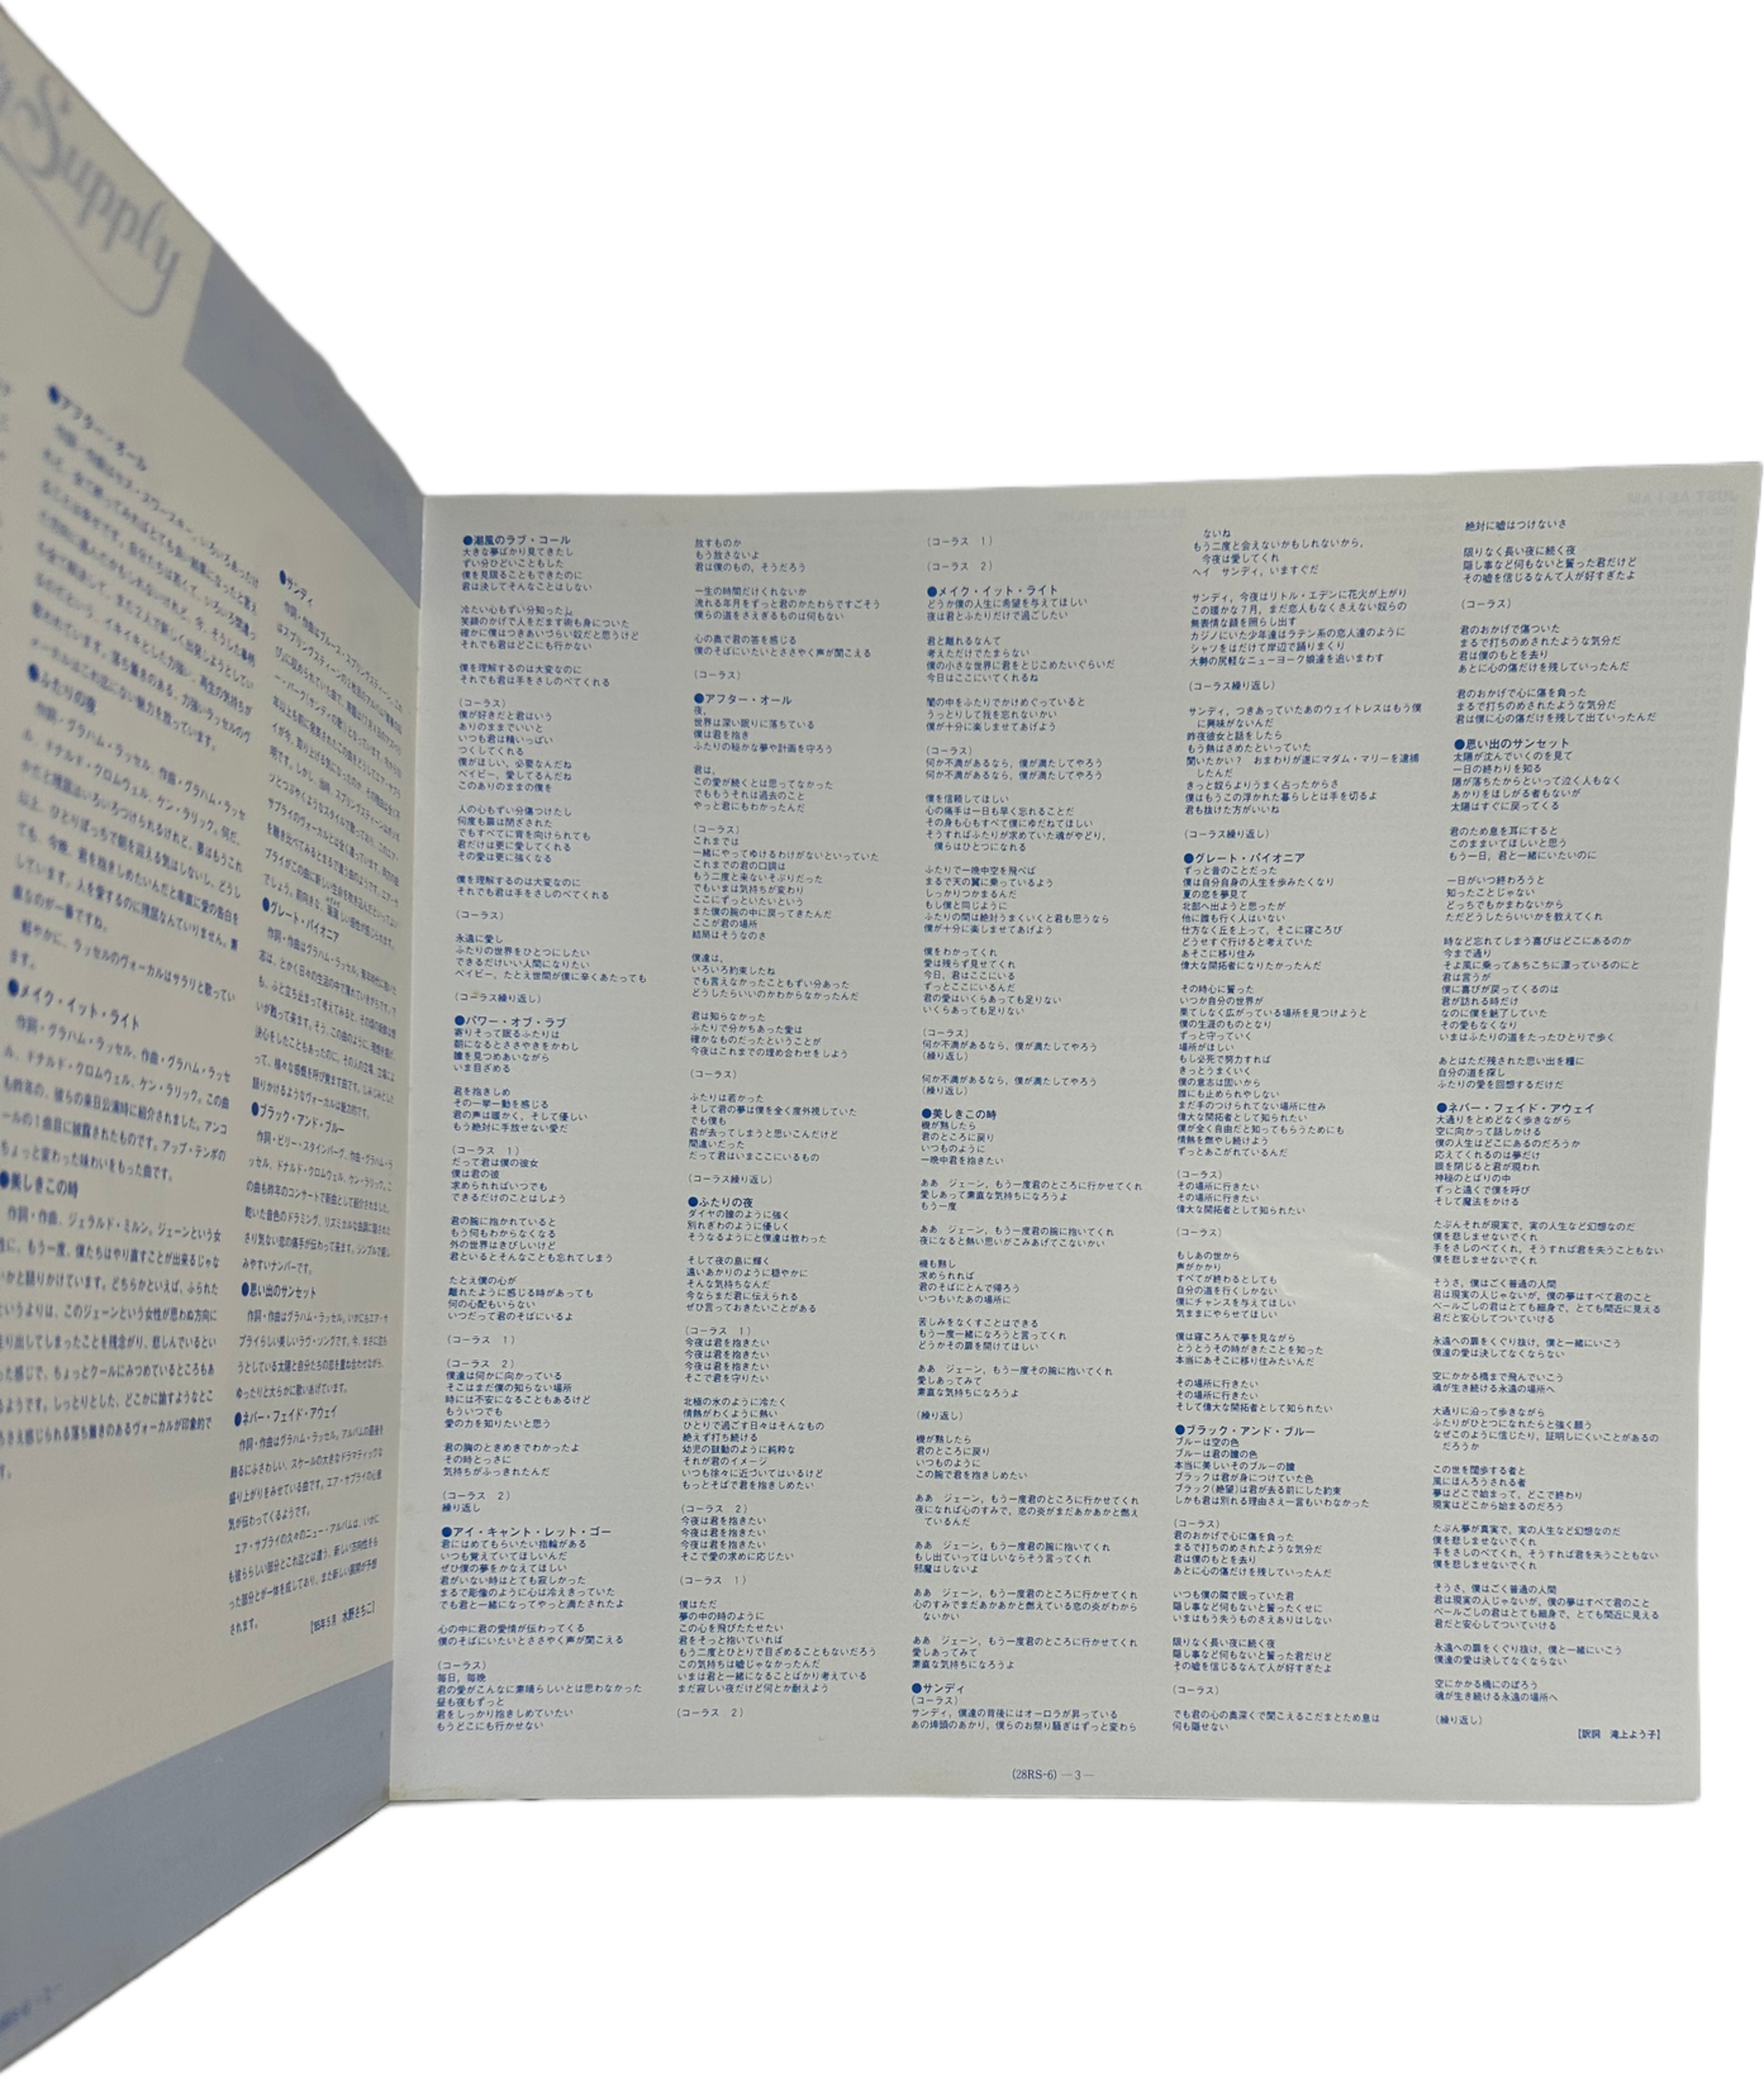 Supply
●アフター・オール
●ふたりの夜
作詞・グラハム・ラッセル、作曲・グラハム・ラッセ
ル、ドナルド・クロムウェル、ケン・ラリック。何だ、
かだと理屈はいろいろつけられるけれど、要はもうこれ
以上、ひとりぼっちで朝を迎える気はしないし、どうし
ても、今晩、君を抱きしめたいんだと率直に愛の告白を
しています。人を愛するのに理屈なんていりません。素
直なのが一番ですね。
軽やかに、ラッセルのヴォーカルはサラリと歌ってい
ます。
●メイク・イット・ライト
作詞・グラハム・ラッセル、作曲・グラハム・ラッセ
ル、ドナルド・クロムウェル、ケン・ラリック。この曲
も昨年の、彼らの来日公演時に紹介されました。アンコ
ールの1曲目に披露されたものです。アップ・テンポの
ちょっと変わった味わいをもった曲です。
●美しきこの時
作詞・作曲、ジェラルド・ミルン。ジェーンという女
性に、もう一度、僕たちはやり直すことが出来るじゃな
いかと語りかけています。どちらかといえば、ふられた
というよりは、このジェーンという女性が思わぬ方向に
走り出してしまったことを残念がり、悲しんでいるとい
った感じで、ちょっとクールにみつめているところもあ
るようです。しっとりとした、どこかに諭すようなとこ
ろさえ感じられる落ち着きのあるヴォーカルが印象的で
す。
●サンディ
●グレート・パイオニア
●ブラック・アンド・ブルー
作詞・ビリー・スタインバーグ、作曲・グラハム・ラ
ッセル、ドナルド・クロムウェル、ケン・ラリック。こ
の曲も昨年のコンサートで新曲として紹介されました。
乾いた音色のドラミング、リズミカルな曲調に隠された
さり気ない恋の痛手が伝わって来ます。シンプルで親し
みやすいナンバーです。
●思い出のサンセット
作詞・作曲はグラハム・ラッセル。いかにもエア・サ
プライらしい美しいラヴ・ソングです。今、まさに沈も
うとしている太陽と自分たちの恋を重ね合わせながら、
ゆったりと大らかに歌いあげています。
●ネバー・フェイド・アウェイ
作詞・作曲はグラハム・ラッセル。アルバムの最後を
飾るにふさわしい、スケールの大きなドラマティックな
盛り上がりをみせている曲です。エア・サプライの心意
気が伝わってくるようです。
エア・サプライの久々のニュー・アルバムは、いかに
も彼ららしい部分とこれ迄とは違う、新しい方向性をも
った部分とが一体を成しており、また新しい展開が予想
されます。
['85年5月 水野さちこ]
●潮風のラブ・コール
大きな夢ばかり見てきたし
ずい分ひどいこともした
僕を見限ることもできたのに
君は決してそんなことはしない
冷たい心もずい分知ったし
笑顔のかげで人をだます術も身についた
確かに僕はつきあいづらい奴だと思うけど
それでも君はどこにも行かない
僕を理解するのは大変なのに
それでも君は手をさしのべてくれる
(コーラス)
僕が好きだと君はいう
ありのままでいいと
いつも君は精いっぱい
つくしてくれる
僕がほしい、必要なんだね
ベイビー、愛してるんだね
このありのままの僕を
人の心もずい分傷つけたし
何度も扉は閉ざされた
でもすべてに背を向けられても
君だけは更に愛してくれる
その愛は更に強くなる
僕を理解するのは大変なのに
それでも君は手をさしのべてくれる
(コーラス)
永遠に愛し
ふたりの世界をひとつにしたい
できるだけいい人間になりたい
ベイビー、たとえ世間が僕に辛くあたっても
(コーラス繰り返し)
●パワー・オブ・ラブ
寄りそって眠るふたりは
朝になるとささやきをかわし
瞳を見つめあいながら
いま目ざめる
君を抱きしめ
その一挙一動を感じる
君の声は暖かく、そして優しい
もう絶対に手放せない愛だ
(コーラス 1)
だって君は僕の彼女
僕は君の彼
求められればいつでも
できるだけのことはしよう
君の腕に抱かれていると
もう何もわからなくなる
外の世界はきびしいけど
君といるとそんなことも忘れてしまう
たとえ僕の心が
離れたように感じる時があっても
何の心配もいらない
いつだって君のそばにいるよ
(コーラス 1)
(コーラス 2)
僕達は何かに向かっている
そこはまだ僕の知らない場所
時には不安になることもあるけど
もういつでも
愛の力を知りたいと思う
君の胸のときめきでわかったよ
その時とっさに
気持ちがふっきれたんだ
(コーラス 2)
繰り返し
●アイ・キャント・レット・ゴー
君にはめてもらいたい指輪がある
いつも覚えていてほしいんだ
ぜひ僕の夢をかなえてほしい
君がいない時はとても寂しかった
まるで彫像のように心は冷えきっていた
でも君と一緒になってやっと満たされたよ
心の中に君の愛情が伝わってくる
僕のそばにいたいとささやく声が聞こえる
(コーラス)
毎日、毎晩
君の愛がこんなに素晴らしいとは思わなかった
昼も夜もずっと
君をしっかり抱きしめていたい
もうどこにも行かせない
放すものか
もう放さないよ
君は僕のもの、そうだろう
一生の時間だけくれないか
流れる年月をずっと君のかたわらですごそう
僕らの道をさえぎるものは何もない
心の奥で君の答を感じる
僕のそばにいたいとささやく声が聞こえる
(コーラス)
●アフター・オール
夜、
世界は深い眠りに落ちている
僕は君を抱き
ふたりの秘かな夢や計画を守ろう
君は、
この愛が続くとは思ってなかった
でももうそれは過去のこと
やっと君にもわかったんだ
(コーラス)
これまでは
一緒にやってゆけるわけがないといっていた
これまでの君の口調は
もう二度と来ないそぶりだった
でもいまは気持ちが変わり
ここにずっといたいという
また僕の腕の中に戻ってきたんだ
ここが君の場所
結局はそうなのさ
僕達は、
いろいろ約束したね
でも言えなかったこともずい分あった
どうしたらいいのかわからなかったんだ
君は知らなかった
ふたりで分かちあった愛は
確かなものだったということが
今夜はこれまでの埋め合わせをしよう
(コーラス)
ふたりは若かった
そして君の夢は僕を全く度外視していた
でも僕も
君が去ってしまうと思いこんだけど
間違いだった
だって君はいまここにいるもの
(コーラス繰り返し)
●ふたりの夜
ダイヤの瞳のように強く
別れぎわのように優しく
そうなるようにと僕達は教わった
そして夜の島に輝く
遠いあかりのように穏やかに
そんな気持ちなんだ
今ならまだ君に伝えられる
ぜひ言っておきたいことがある
(コーラス 1)
今夜は君を抱きたい
今夜は君を抱きたい
今夜は君を抱きたい
そこで君を守りたい
北極の氷のように冷たく
情熱がわくように熱い
ひとりで過ごす日々はそんなもの
絶えず打ち続ける
幼児の鼓動のように純粋な
それが君のイメージ
いつも徐々に近づいてはいるけど
もっとそばで君を抱きしめたい
(コーラス 2)
今夜は君を抱きたい
今夜は君を抱きたい
今夜は君を抱きたい
そこで愛の求めに応じたい
(コーラス 1)
僕はただ
夢の中の時のように
この心を飛びたたせたい
君をそっと抱いていれば
もう二度とひとりで目ざめることもないだろう
この気持ちは嘘じゃなかったんだ
いまは君と一緒になることばかり考えている
まだ寂しい夜だけど何とか耐えよう
(コーラス 2)
(コーラス 1)
(コーラス 2)
●メイク・イット・ライト
どうか僕の人生に希望を与えてほしい
夜は君とふたりだけで過ごしたい
君と離れるなんて
考えただけでたまらない
僕の小さな世界に君をとじこめたいぐらいだ
今日はここにいてくれるね
闇の中をふたりでかけめぐっていると
うっとりして我を忘れないかい
僕が十分に楽しませてあげよう
(コーラス)
何か不満があるなら、僕が満たしてやろう
何か不満があるなら、僕が満たしてやろう
僕を信頼してほしい
心の痛手は一日も早く忘れることだ
その身も心もすべて僕にゆだねてほしい
そうすればふたりが求めていた魂がやどり、
僕らはひとつになれる
ふたりで一晩中空を飛べば
まるで天の翼に乗っているよう
しっかりつかまるんだ
もし僕と同じように
ふたりの間は絶対うまくいくと君も思うなら
僕が十分に楽しませてあげよう
僕をわかってくれ
愛は残らず見せてくれ
今日、君はここにいる
ずっとここにいるんだ
君の愛はいくらあっても足りない
いくらあっても足りない
(コーラス)
何か不満があるなら、僕が満たしてやろう
(繰り返し)
何か不満があるなら、僕が満たしてやろう
(繰り返し)
●美しきこの時
機が熟したら
君のところに戻り
いつものように
一晩中君を抱きたい
ああ ジェーン、もう一度君のところに行かせてくれ
愛しあって素直な気持ちになろうよ
もう一度
ああ ジェーン、もう一度君の腕に抱いてくれ
夜になると熱い思いがこみあげてこないかい
機も熟し
求められれば
君のそばにとんで帰ろう
いつもいたあの場所に
苦しみをなくすことはできる
もう一度一緒になろうと言ってくれ
どうかその扉を開けてほしい
ああ ジェーン、もう一度その腕に抱いてくれ
愛しあってみて
素直な気持ちになろうよ
(繰り返し)
機が熟したら
君のところに戻り
いつものように
この腕で君を抱きしめたい
ああ ジェーン、もう一度君のところに行かせてくれ
夜になれば心のすみで、恋の炎がまだあかあかと燃え
ているんだ
ああ ジェーン、もう一度君の腕に抱いてくれ
もし出ていってほしいならそう言ってくれ
邪魔はしないよ
ああ ジェーン、もう一度君のところに行かせてくれ
心のすみでまだあかあかと燃えている恋の炎がわから
ないかい
ああ ジェーン、もう一度君のところに行かせてくれ
愛しあってみて
素直な気持ちになろうよ
●サンディ
(コーラス)
サンディ、僕達の背後にはオーロラが昇っている
あの埠頭のあかり、僕らのお祭り騒ぎはずっと変わら
ないね
もう二度と会えないかもしれないから、
今夜は愛してくれ
ヘイ サンディ、いますぐだ
サンディ、今夜はリトル・エデンに花火が上がり
この暖かな7月、まだ恋人もなくさえない奴らの
無表情な顔を照らし出す
カジノにいた少年達はラテン系の恋人達のように
シャツをはだけて岸辺で踊りまくり
大勢の尻軽なニューヨーク娘達を追いまわす
(コーラス繰り返し)
サンディ、つきあっていたあのウェイトレスはもう僕
に興味がないんだ
昨夜彼女と話をしたら
もう熱はさめたといっていた
聞いたかい? おまわりが遂にマダム・マリーを逮捕
したんだ
きっと奴らよりうまく占ったからさ
僕はもうこの浮かれた暮らしとは手を切るよ
君も抜けた方がいいね
(コーラス繰り返し)
●グレート・パイオニア
ずっと昔のことだった
僕は自分自身の人生を歩みたくなり
夏の恋を夢見て
北部へ出ようと思ったが
他に誰も行く人はいない
仕方なく丘を上って、そこに寝ころび
どうせすぐ行けると考えていた
あそこに移り住み
偉大な開拓者になりたかったんだ
その時心に誓った
いつか自分の世界が
果てしなく広がっている場所を見つけようと
僕の生涯のものとなり
ずっと守っていく
場所がほしい
もし必死で努力すれば
きっとうまくいく
僕の意志は固いから
誰にも止められやしない
まだ手のつけられてない場所に住み
偉大な開拓者として知られたい
僕が全く自由だと知ってもらうためにも
情熱を燃やし続けよう
ずっとあこがれているんだ
(コーラス)
その場所に行きたい
その場所に行きたい
偉大な開拓者として知られたい
(コーラス)
もしあの世から
声がかかり
すべてが終わるとしても
自分の道を行くしかない
僕にチャンスを与えてほしい
気ままにやらせてほしい
僕は寝ころんで夢を見ながら
とうとうその時がきたことを知った
本当にあそこに移り住みたいんだ
その場所に行きたい
その場所に行きたい
そして偉大な開拓者として知られたい
●ブラック・アンド・ブルー
ブルーは空の色
ブルーは君の瞳の色
本当に美しいそのブルーの瞳
ブラックは君が身につけていた色
ブラック(絶望)は君が去る前にした約束
しかも君は別れる理由さえ一言もいわなかった
(コーラス)
君のおかげで心に傷を負った
まるで打ちのめされたような気分だ
君は僕のもとを去り
あとに心の傷だけを残していったんだ
いつも僕の隣で眠っていた君
隠し事など何もないと誓ったくせに
いまはもう失うものさえありはしない
限りなく長い夜に続く夜
隠し事など何もないと誓った君だけど
その嘘を信じるなんて人が好すぎたよ
(コーラス)
でも君の心の奥深くで聞こえるこだまとため息は
何も隠せない
絶対に嘘はつけないさ
限りなく長い夜に続く夜
隠し事など何もないと誓った君だけど
その嘘を信じるなんて人が好すぎたよ
(コーラス)
君のおかげで傷ついた
まるで打ちのめされたような気分だ
君は僕のもとを去り
あとに心の傷だけを残していったんだ
君のおかげで心に傷を負った
まるで打ちのめされたような気分だ
君は僕に心の傷だけを残して出ていったんだ
●思い出のサンセット
太陽が沈んでいくのを見て
一日の終わりを知る
陽が落ちたからといって泣く人もなく
あかりをほしがる者もないが
太陽はすぐに戻ってくる
君のため息を耳にすると
このままいてほしいと思う
もう一日、君と一緒にいたいのに
一日がいつ終わろうと
知ったことじゃない
どっちでもかまわないから
ただどうしたらいいかを教えてくれ
時など忘れてしまう喜びはどこにあるのか
今まで通り
そよ風に乗ってあちこちに漂っているのにと
君は言うが
僕に喜びが戻ってくるのは
君が訪れる時だけ
なのに僕を魅了していた
その愛もなくなり
いまはふたりの道をたったひとりで歩く
あとはただ残された思い出を糧に
自分の道を探し
ふたりの愛を回想するだけだ
●ネバー・フェイド・アウェイ
大通りをとめどなく歩きながら
空に向かって話しかける
僕の人生はどこにあるのだろうか
応えてくれるのは夢だけ
眼を閉じると君が現われ
神秘のとばりの中
ずっと遠くで僕を呼び
そして魔法をかける
たぶんそれが現実で、実の人生など幻想なのだ
僕を悲しませないでくれ
手をさしのべてくれ、そうすれば君を失うこともない
僕を悲しませないでくれ
そうさ、僕はごく普通の人間
君は現実の人じゃないが、僕の夢はすべて君のこと
ベールごしの君はとても細身で、とても間近に見える
君だと安心してついていける
永遠への扉をくぐり抜け、僕と一緒にいこう
僕達の愛は決してなくならない
空にかかる橋まで飛んでいこう
魂が生き続ける永遠の場所へ
大通りに沿って歩きながら
ふたりがひとつになれたらと強く願う
なぜこのように信じたり、証明しにくいことがあるの
だろうか
この世を闊歩する者と
風にほんろうされる者
夢はどこで始まって、どこで終わり
現実はどこから始まるのだろう
たぶん夢が真実で、実の人生など幻想なのだ
僕を悲しませないでくれ
手をさしのべてくれ、そうすれば君を失うこともない
僕を悲しませないでくれ
そうさ、僕はごく普通の人間
君は現実の人じゃないが、僕の夢はすべて君のこと
ベールごしの君はとても細身で、とても間近に見える
君だと安心してついていける
永遠への扉をくぐり抜け、僕と一緒にいこう
僕達の愛は決してなくならない
空にかかる橋にのぼろう
魂が生き続ける永遠の場所へ
(繰り返し)
[訳詞 滝上よう子]
(28RS-6) —3—